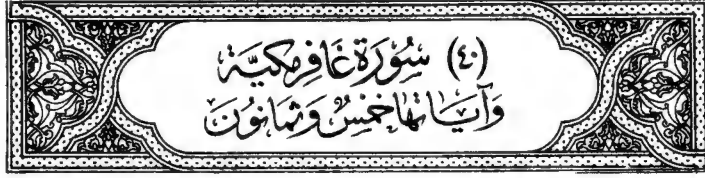 (٤٠) سُورَةُ غَافِرٍ مَكِيَّة
وَآيَاتُهَا خَمْسٌ وَثَمَانُونَ